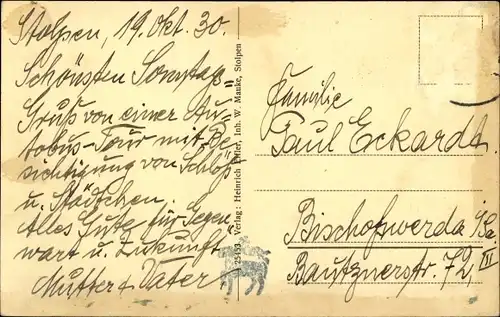 Stolpen, 19. Okt. 30.
Schönsten Sonntag=
Gruß von einer Au=
tobus-Tour mit Be=
sichtigung von Schloß
u. Städtchen.
Alles Gute für Gegen=
wart u. Zukunft
Mutter & Vater.
Verlag: Heinrich Inh. W. Mauke, Stolpen
Familie
Paul Eckardt.
Bischofswerda i/Sa
Bautznerstr. 72, III